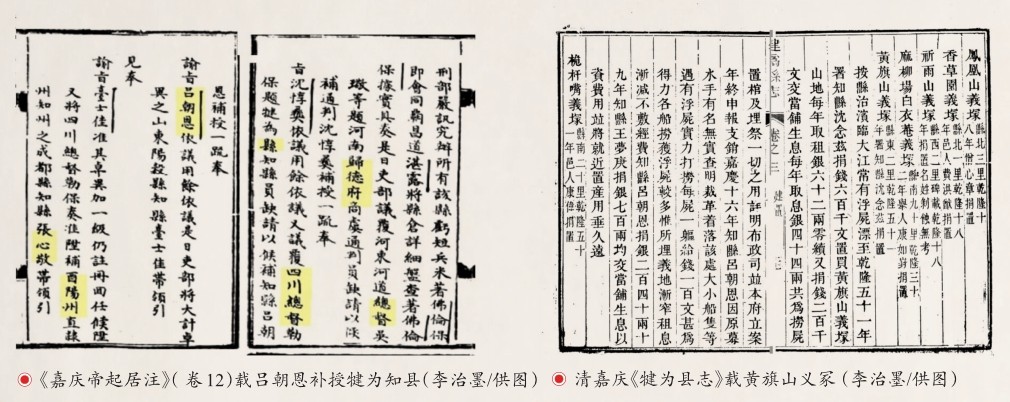 刑部嚴訊究辦所有該縣虧短兵米著佛倫保
即會同霸昌道湛露將縣倉詳細盤查著佛倫
保據實具奏是日吏部議覆河東河道總督吳
璥等題河南歸德府商虞通判員缺請以
補通判沈惇奠補授一疏奉
旨沈惇奠依議用餘依議又議覆四川總督勒
保題犍為縣知縣員缺請以候補知縣呂朝
恩補授一疏奉
諭旨呂朝恩依議用餘依議是日吏部將大計卓
異之山東陽穀縣知縣臺士佳帶領引
見奉
諭旨臺士佳准其卓異加一級仍註冊回任候陞
又將四川總督勒保奏准陞補酉陽州直隸
州知州之成都縣知縣張心敬帶領引
《嘉庆帝起居注》(卷12)载吕朝恩补授犍为知县(李治墨/供图)
鳳凰山義塚 縣北三里乾隆十八年僧心章捐置
香草園義塚 縣北一里乾隆十八年邑人費洪捐置
祈雨山義塚 縣西二里碑載乾隆十八年捐置名姓剝蝕無考
麻柳場白衣菴義塚 縣南九十里乾隆三十二年舉人康如捐置
黃旗山義塚 縣南一里乾隆五十一年署知縣沈念茲捐置
按縣治濱臨大江常有浮屍漂至乾隆五十一年
署知縣沈念茲捐錢六百千文置買黃旗山義塚
山地每年取租銀六十二兩零續又捐錢二百千
文交當舖生息每年取息銀四十四兩共為撈屍
犍為縣志 卷之三 建置
置棺及埋祭一切之用詳明布政司並本府立案
年終申報支銷嘉慶十六年知縣呂朝恩因原募
水手有名無實查明裁革着落該處大小船隻等
遇有浮屍實力打撈每屍一軀給錢一百文甚為
得力各船撈獲浮屍較多惟所埋義地漸窄租息
漸減不敷經費知縣呂朝恩捐銀二百四十兩十
九年知縣王夢庚捐銀七百兩均交當舖生息以
資費用並將就近置產用垂久遠
桅杆嘴義塚 縣南二里乾隆五十一年邑人康倍捐置
清嘉庆《犍为县志》载黄旗山义冢(李治墨/供图)